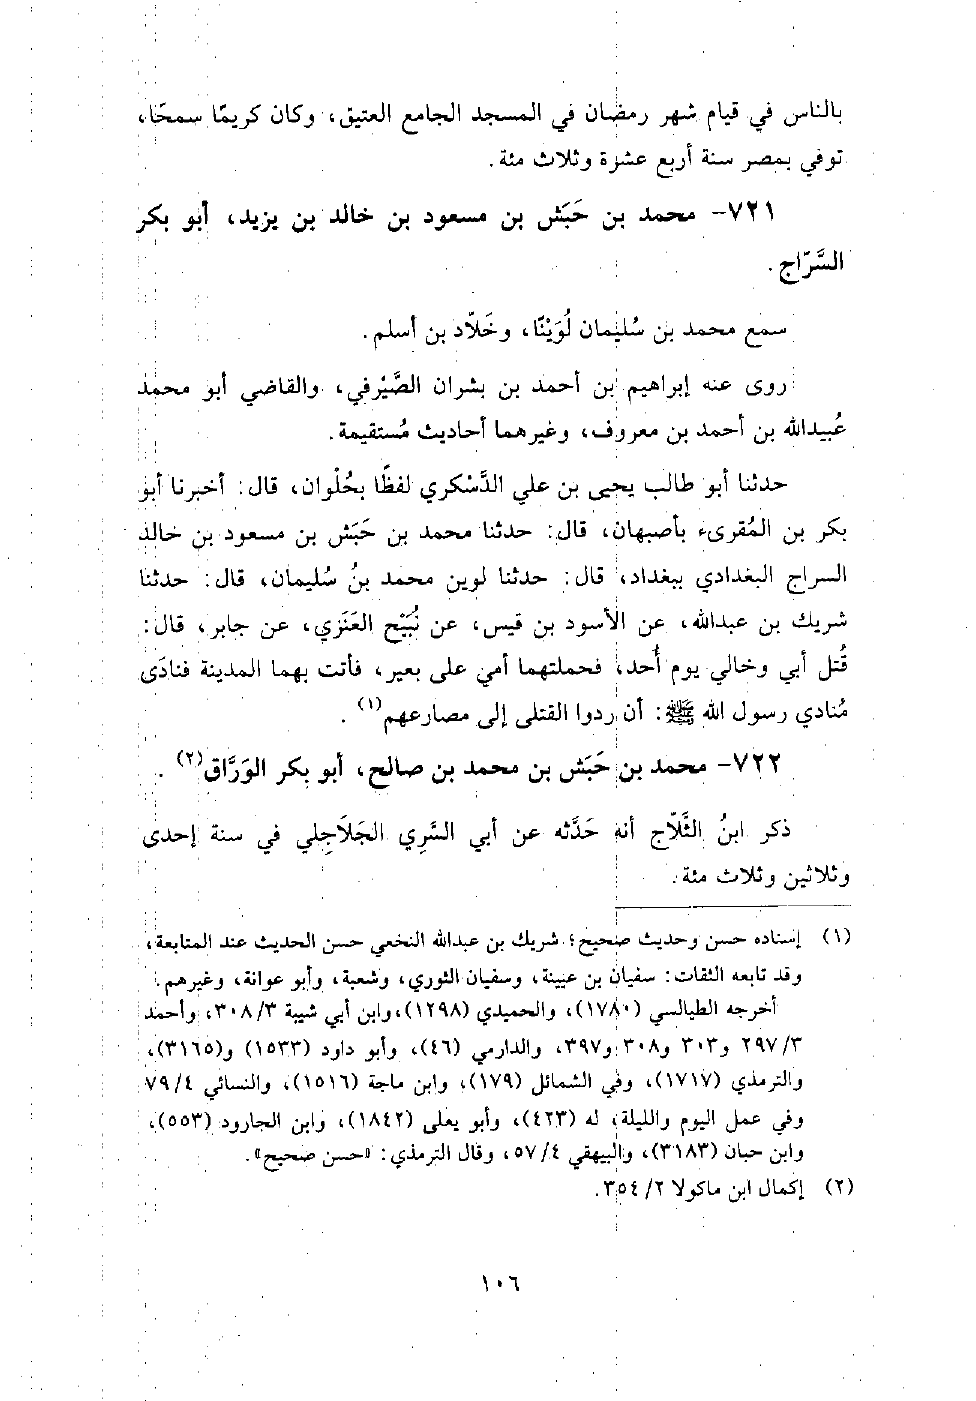 بالناس في قيام شهر رمضان في المسجد الجامع العتيق، وكان كريمًا سمحًا،
توفي بمصر سنة أربع عشرة وثلاث مئة.
٧٢١- محمد بن حَبَش بن مسعود بن خالد بن يزيد، أبو بكر
السَّرّاج.
سمع محمد بن سُليمان لُوَيْنًا، وخَلّاد بن أسلم.
روى عنه إبراهيم بن أحمد بن بشران الصَّيْرفي، والقاضي أبو محمد
عُبيدالله بن أحمد بن معروف، وغيرهما أحاديث مُستقيمة.
حدثنا أبو طالب يحيى بن علي الدَّسْكري لفظًا بحُلْوان، قال: أخبرنا أبو
بكر بن المُقرىء بأصبهان، قال: حدثنا محمد بن حَبَش بن مسعود بن خالد
السراج البغدادي ببغداد، قال: حدثنا لوين محمد بنُ سُليمان، قال: حدثنا
شريك بن عبدالله، عن الأسود بن قيس، عن نُبَيْح العَنَزي، عن جابر، قال:
قُتل أبي وخالي يوم أُحد، فحملتهما أمي على بعير، فأتت بهما المدينة فنادَى
مُنادي رسول الله ﷺ: أن ردوا القتلى إلى مصارعهم(١).
٧٢٢- محمد بن حَبَش بن محمد بن صالح، أبو بكر الوَرَّاق(٢).
ذكر ابنُ الثَّلّاج أنه حَدَّثه عن أبي السَّرِي الجَلَاجِلي في سنة إحدى
وثلاثين وثلاث مئة.
(١) إسناده حسن وحديث صحيح؛ شريك بن عبدالله النخعي حسن الحديث عند المتابعة،
وقد تابعه الثقات: سفيان بن عيينة، وسفيان الثوري، وشعبة، وأبو عوانة، وغيرهم.
أخرجه الطيالسي (١٧٨٠)، والحميدي (١٢٩٨)، وابن أبي شيبة ٣/ ٣٠٨، وأحمد
٣/ ٢٩٧ و٣٠٣ و٣٠٨ و٣٩٧، والدارمي (٤٦)، وأبو داود (١٥٣٣) و(٣١٦٥)،
والترمذي (١٧١٧)، وفي الشمائل (١٧٩)، وابن ماجة (١٥١٦)، والنسائي ٤/ ٧٩
وفي عمل اليوم والليلة، له (٤٢٣)، وأبو يعلى (١٨٤٢)، وابن الجارود (٥٥٣)،
وابن حبان (٣١٨٣)، والبيهقي ٤/ ٥٧، وقال الترمذي: «حسن صحيح».
(٢) إكمال ابن ماكولا ٢/ ٣٥٤.
١٠٦